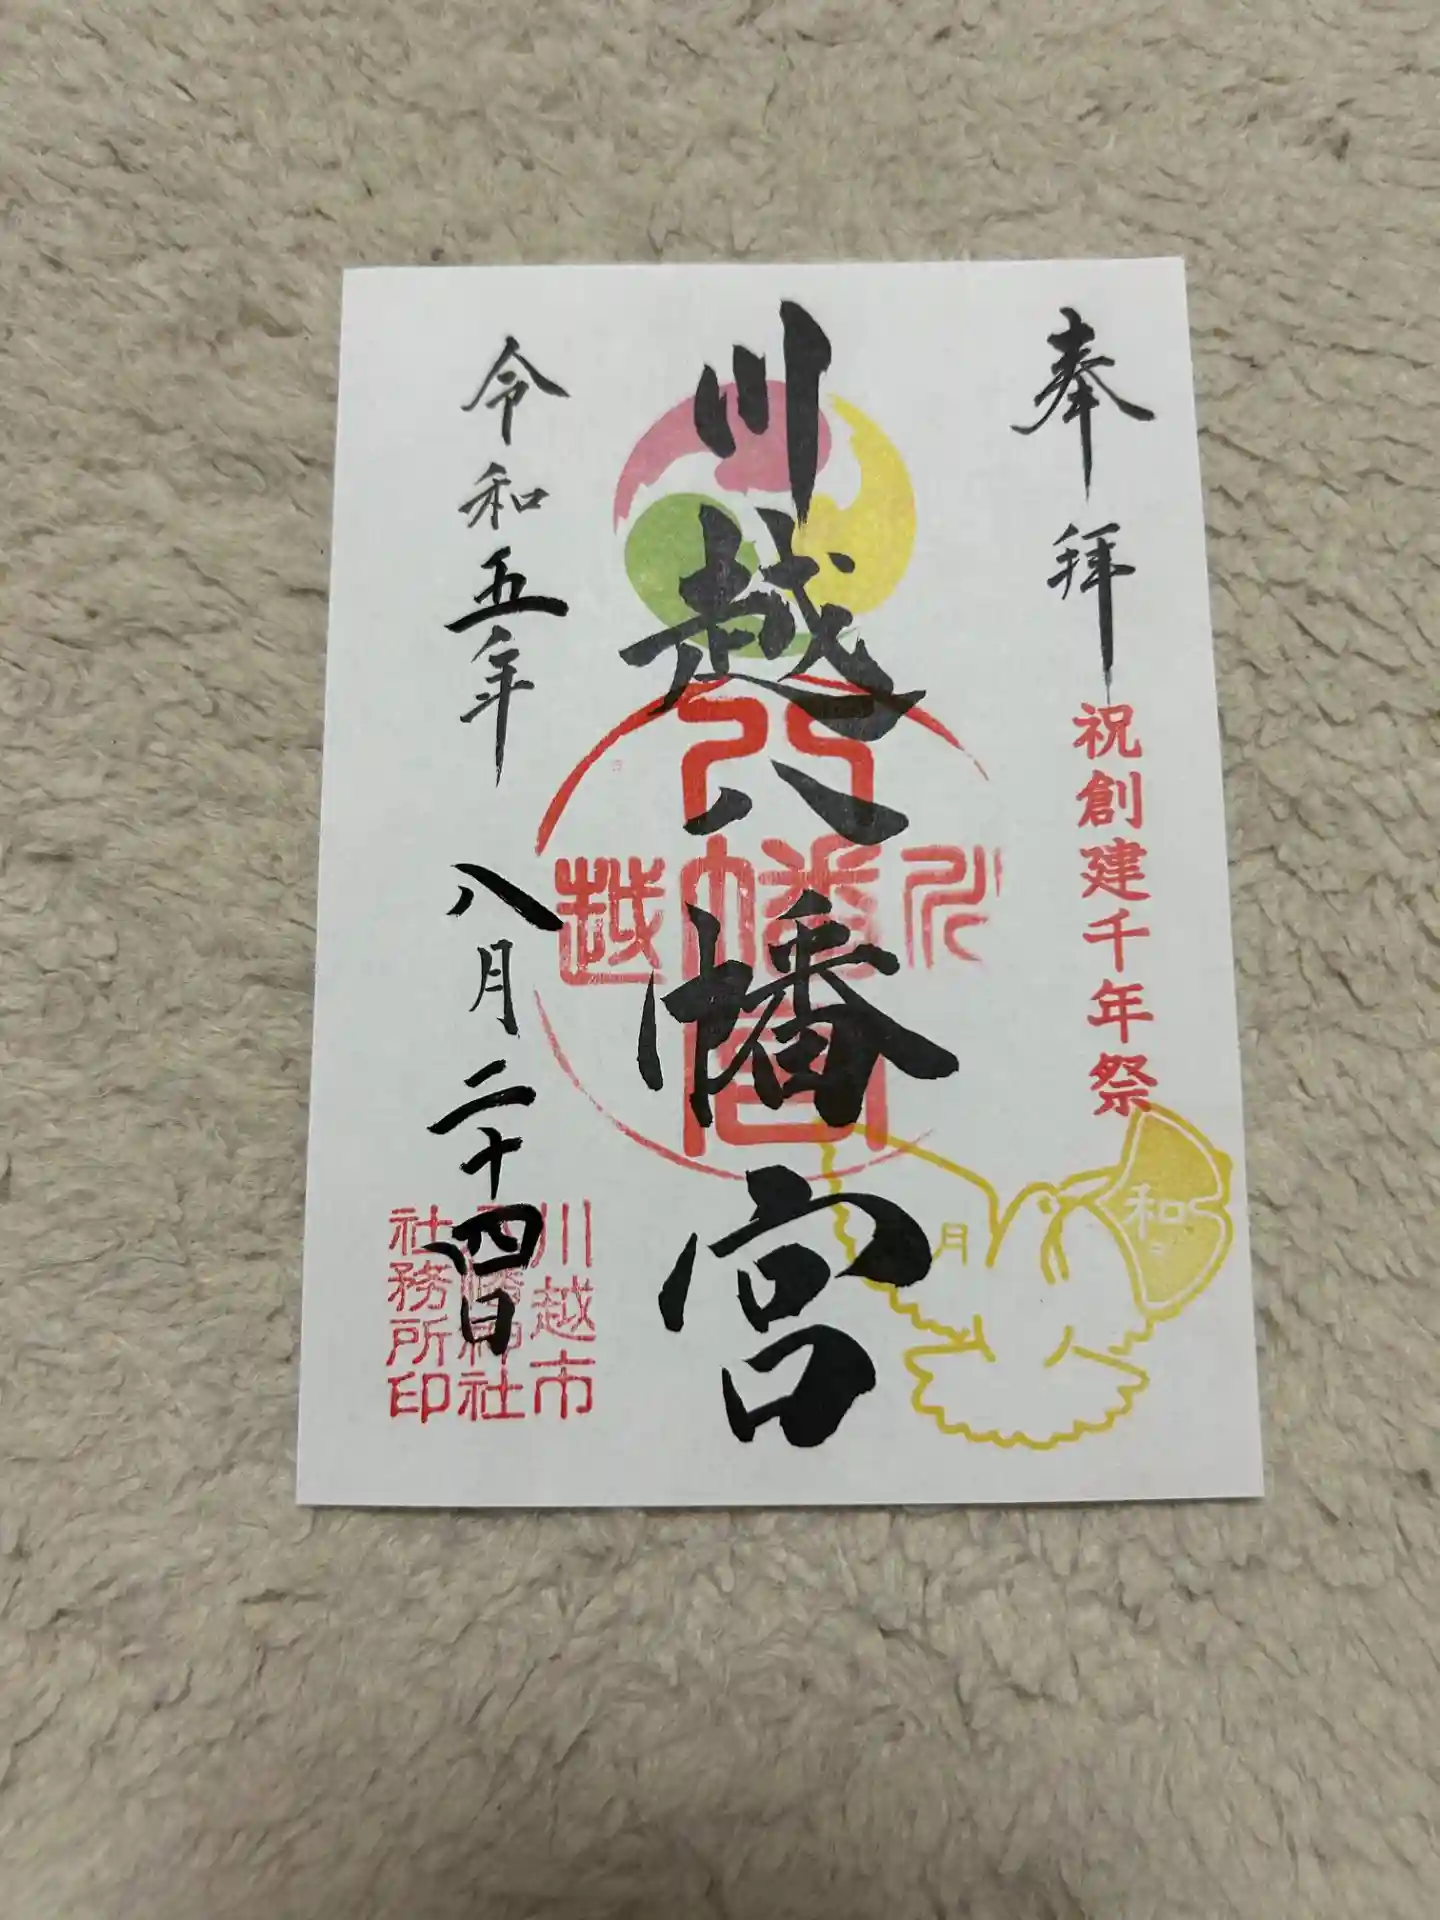 奉拝
祝創建千年祭
和
月
川越八幡宮
川越
八幡宮
令和五年 八月二十四日
川越市
八幡神社
社務所印